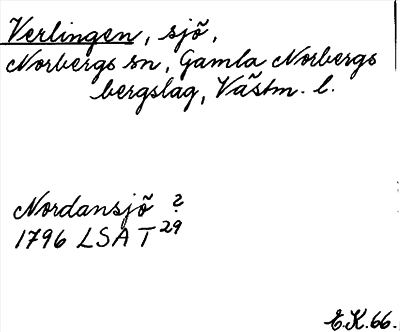 Verlingen, sjö,
Norbergs sn, Gamla Norbergs
bergslag, Västm. l.
Nordansjö ?
1796 LSA T 29
E.K. 66.